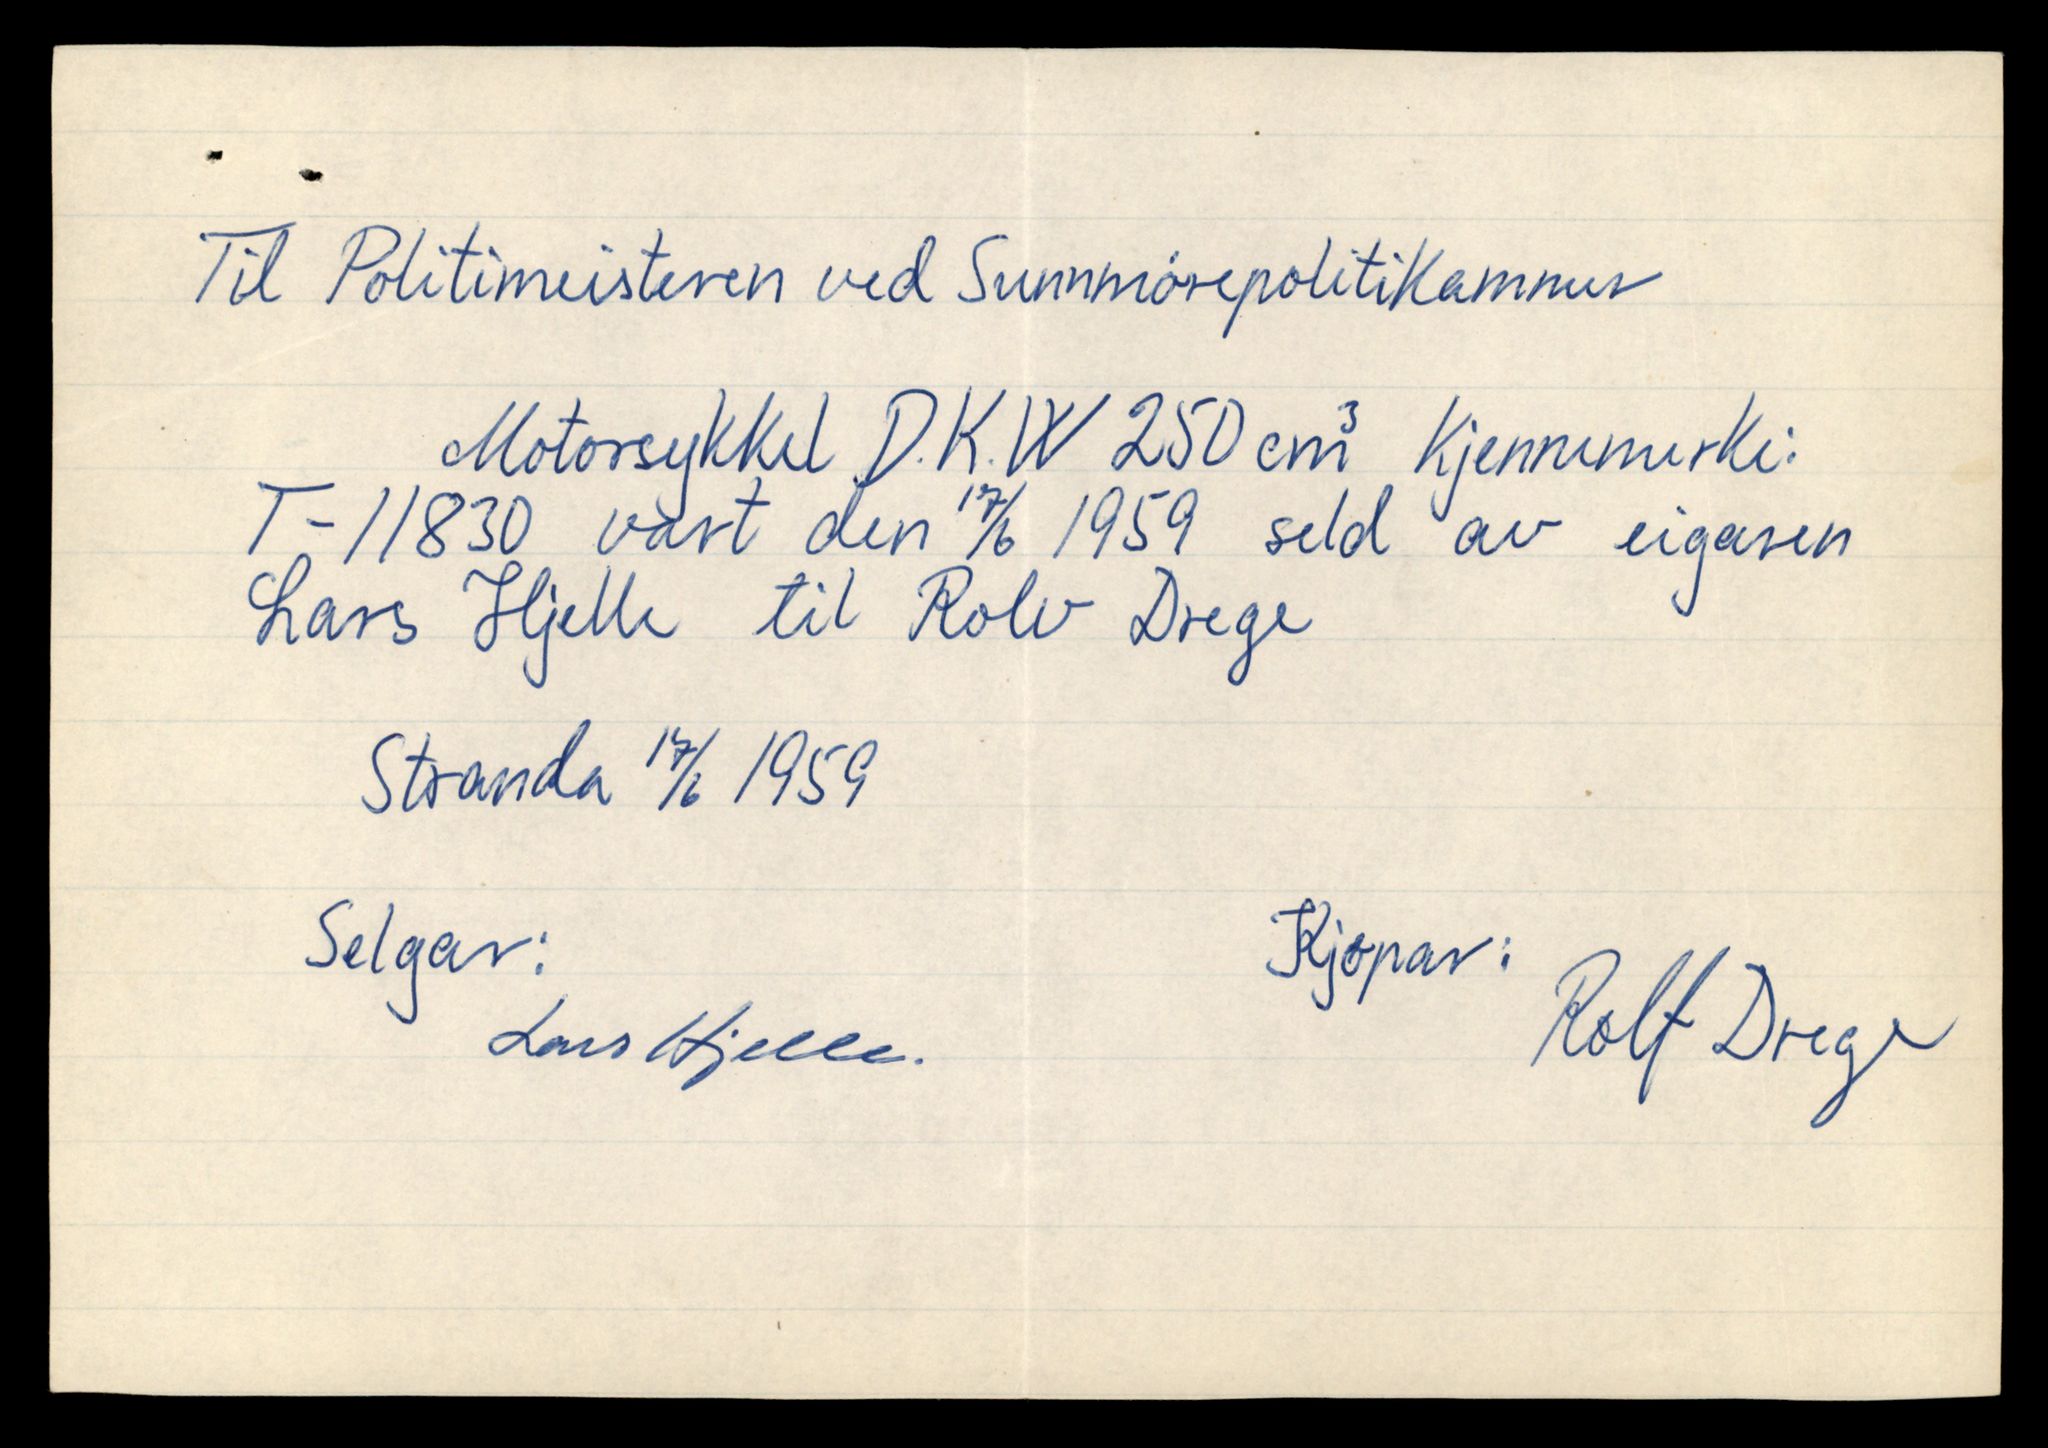 Til Politimeisteren ved Sunnmörepolitikammer
Motorsykkel D.K.W 250 cm³ Kjennemerke:
T-11830 vart den 17/6 1959 seld av eigaren
Lars Hjelle til Rolv Drege
Stranda 17/6 1959
Selgar:
Kjøpar:
Lars Hjelle.
Rolf Drege